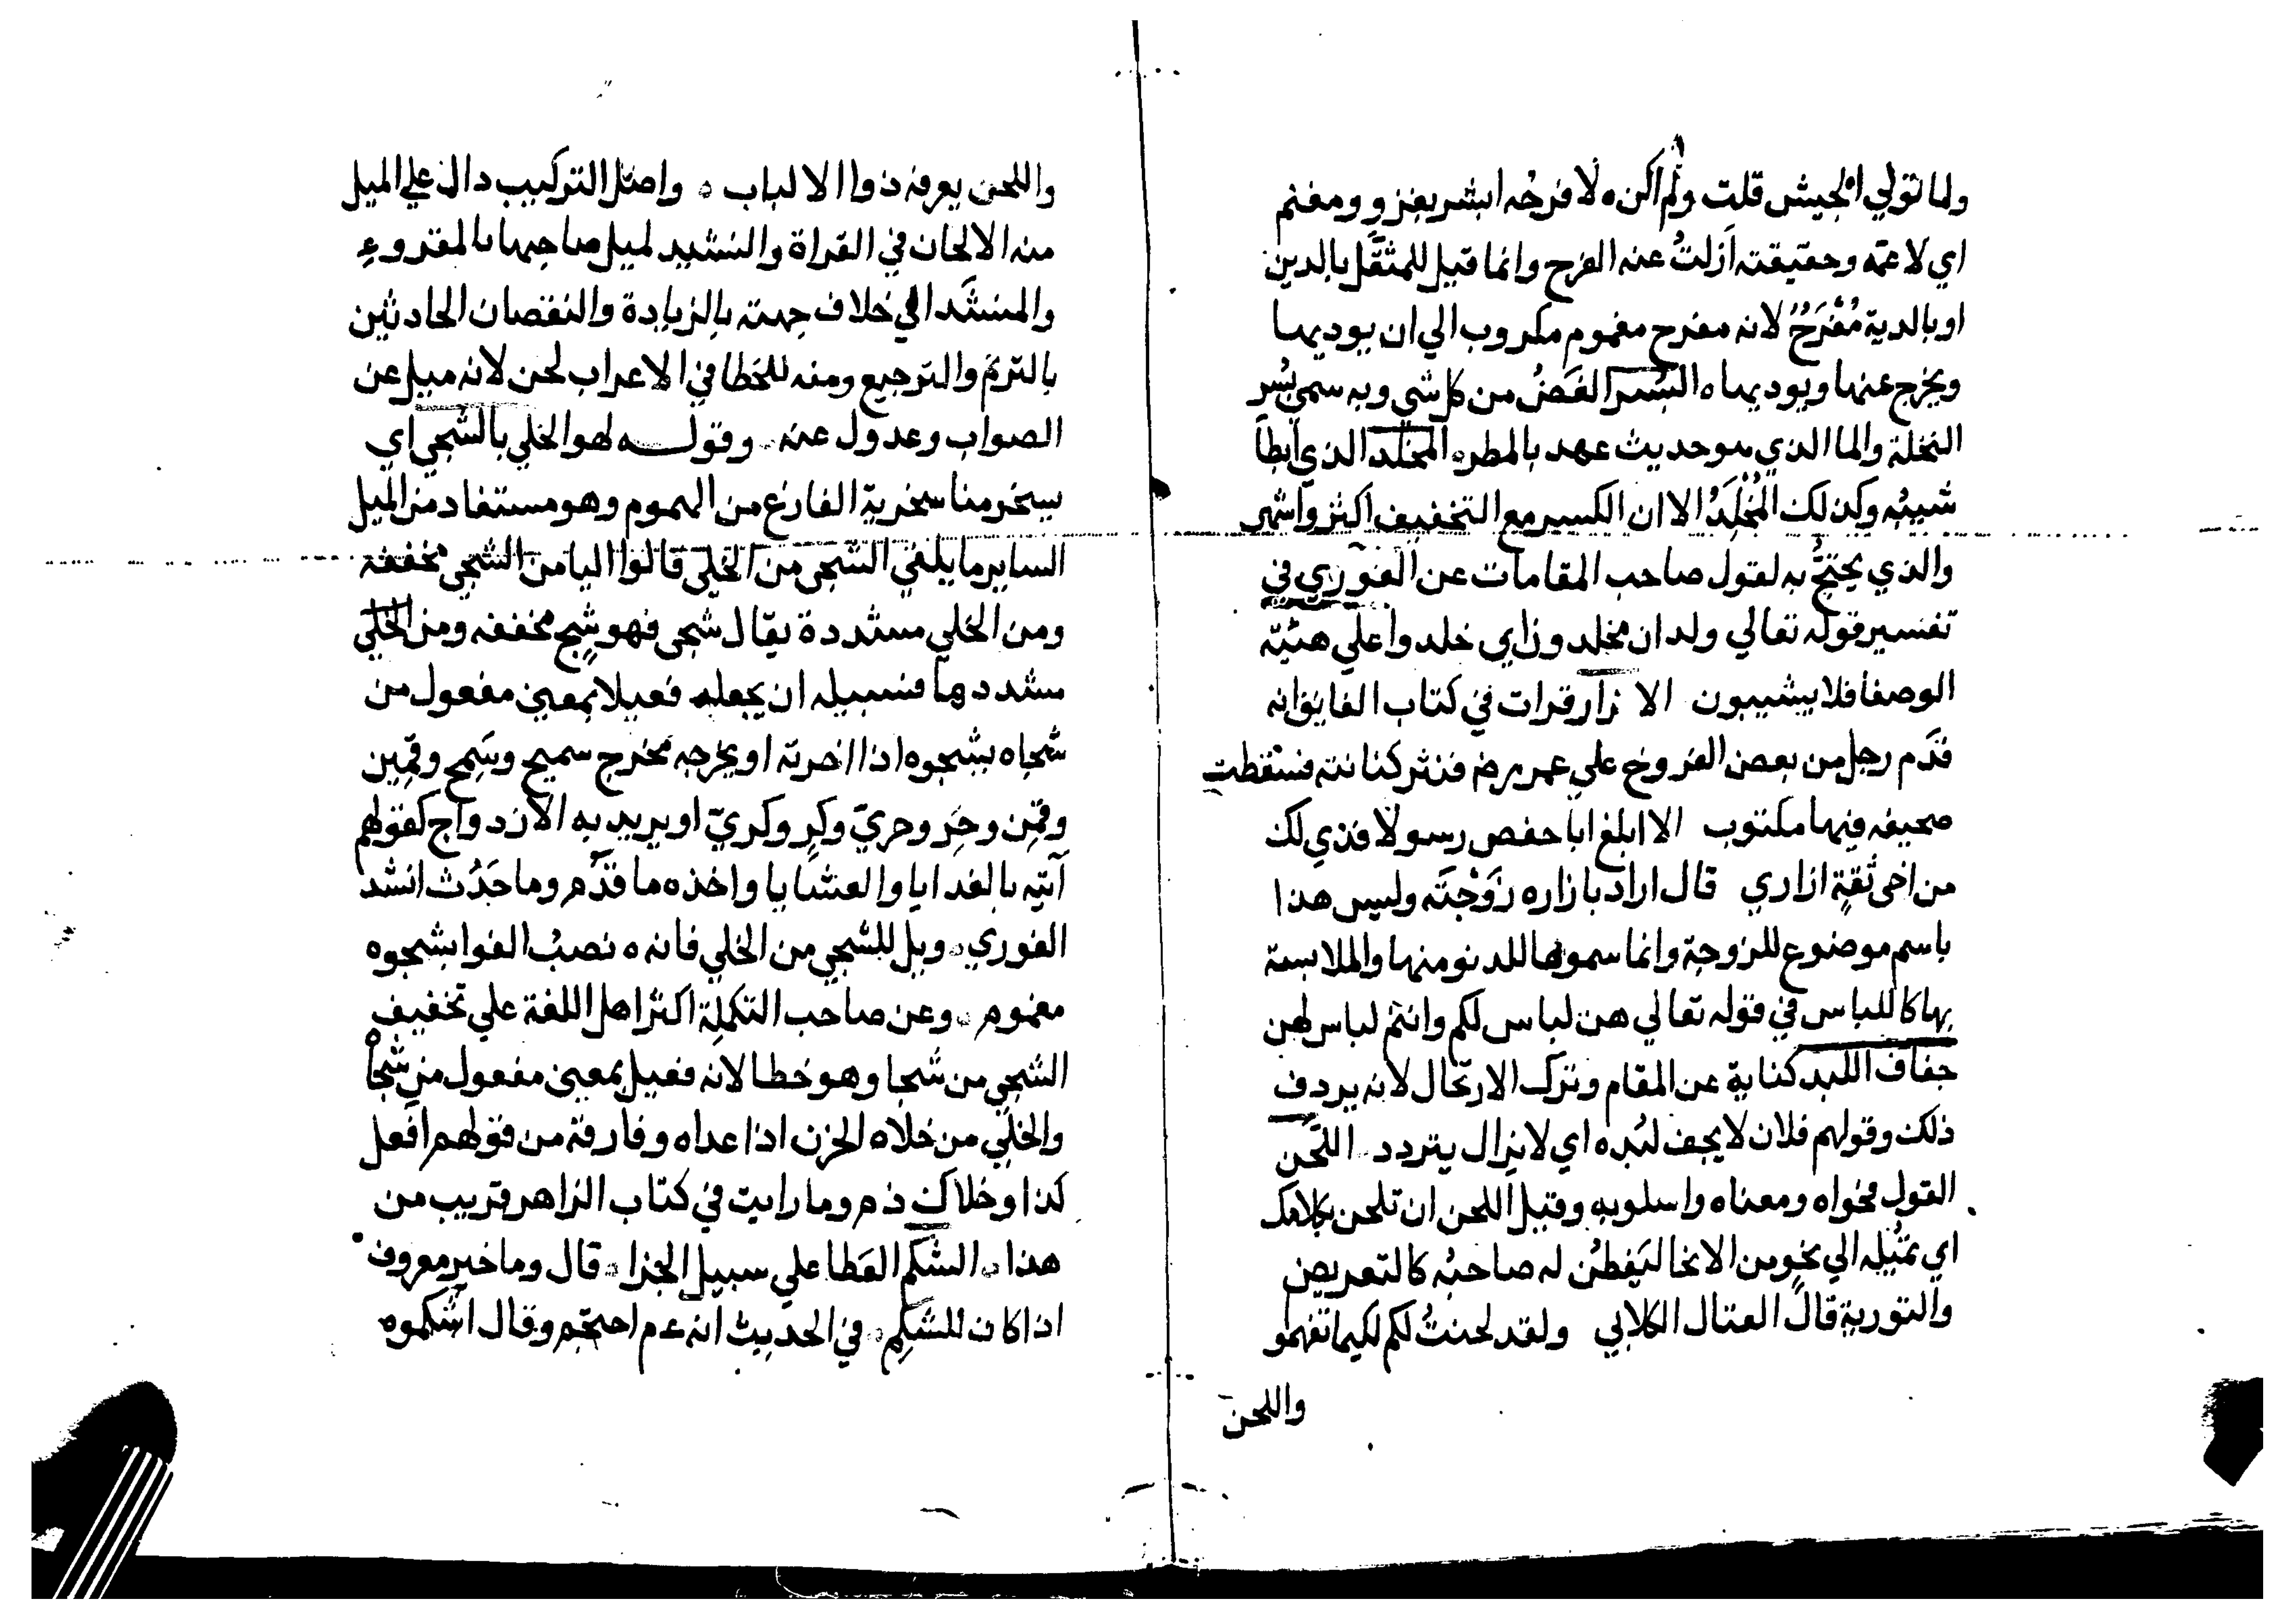 ولما تولي الجيش قلت ولم اكن ه لا فرحه ابشر بغزو ومغنم
اي لا غمه وحقيقته ازلتُ عنه الفرح وانما قيل للمثقَل بالدين
او بالدية مُفْرَحٌ لانه مفرح مغموم مكروب الي ان يوديهما
ويخرج عنهما ويوديهما ه البُسر الغَضُ من كل شي وبه سمي بُسر
النخلة والما الذي هو حديث عهد بالمطر ه المخلَد الذي ابطا
شيبُه وكذلك المُخْلِدُ الا ان الكسر مع التخفيف اكثر واشهر
والذي يحتجُّ به لقول صاحب المقامات عن الغوري في
تفسير قوله تعالي ولدان مخلدون اي خلدوا علي هئية
الوصفا فلا يشيبون الازار قرات في كتاب الفايق انه
قدَم رجل من بعض الفروج علي عمر رضه فنثر كنانته فسقطت
صحيفه فيها مكتوب الا ابلغ ابا حفص رسولا فدي لك
من اخي ثقةٍ ازاري قال اراد بازاره زَوْجتَه وليس هذا
باسم موضوع للزوجة وانما سموها للدنو منها والملابسة
بها كاللباس في قوله تعالي هن لباس لكم وانتم لباس لهن
جفاف اللبد كناية عن المقام وترك الارتحال لانه يردف
ذلك وقولهم فلان لا يجف لبْده اي لا يزال يتردد اللحْن
القول فحواه ومعناه واسلوبه وقيل اللحن ان تلحن بكلامك
اي تمثيله الي نحوٍ من الانحا ليَفِطنَ له صاحبُه كالتعريض
والتورية قال القتال الكلابي ولقد لحنتُ لكم لكيما تفهمو
واللحن
واللحن يعرفه ذوا الالباب ه واصل التركيب دال علي الميل
منه الالحان في القراة والنشيد لميل صاحبها بالمقروء
والمنشَد الي خلاف جهته بالزيادة والنقصان الحادثين
بالترنم والترجيع ومنه للخطا في الاعراب لحن لانه ميل عن
الصواب وعدول عنه وقوله لهو الخلي بالشجي اي
سخر منا سخرية الفارغ من المهموم وهو مستفاد من المثل
الساير ما يلقي الشجي من الخلي قالوا اليا من الشجي مخففة
ومن الخلي مشددة يقال شجى فهو شجٍ مخففه ومن الخلي
مشددها فسبيله ان يجعله فعيلا بمعني مفعول من
شجاه يشجوه اذا احزنه او يخرجه مخرج سميح وسَمِح وقمِين
وقمِن وحَرِ وحريّ وكرٍ وكريّ او يريد به الازدواج كقولهم
آتيه بالغدايا والعشايا واخذه ما قدُم وما حَدُث انشد
الغوري ويل للشجي من الخلي فانه ه نصبُ الفوا بشجوه
مغموم وعن صاحب التكملة اكثر اهل اللغة علي تخفيف
الشجي من شجا وهو خطا لانه فعيل بمعني مفعول من شجاه
والخلّي من خلاه الحزن اذا عداه وفارقه من قولهم افعل
كذا وخلاك ذم وما رايت في كتاب الزاهر قريب من
هذا الشكم العَطا علي سبيل الجزا قال وما خير معروف
اذا كان للشكم في الحديث انه عم احتجم وقال اشكموه